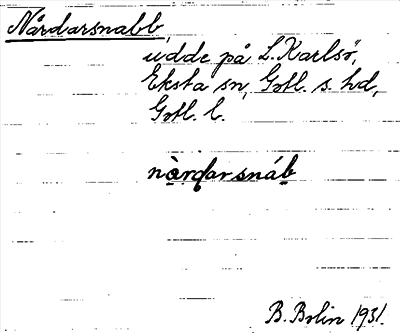 Nårdarsnabb,
udde på L. Karlsö,
Eksta sn, Gotl. s. hd,
Gotl. l.
nàrdarsnáb
B. Bolin 1931.